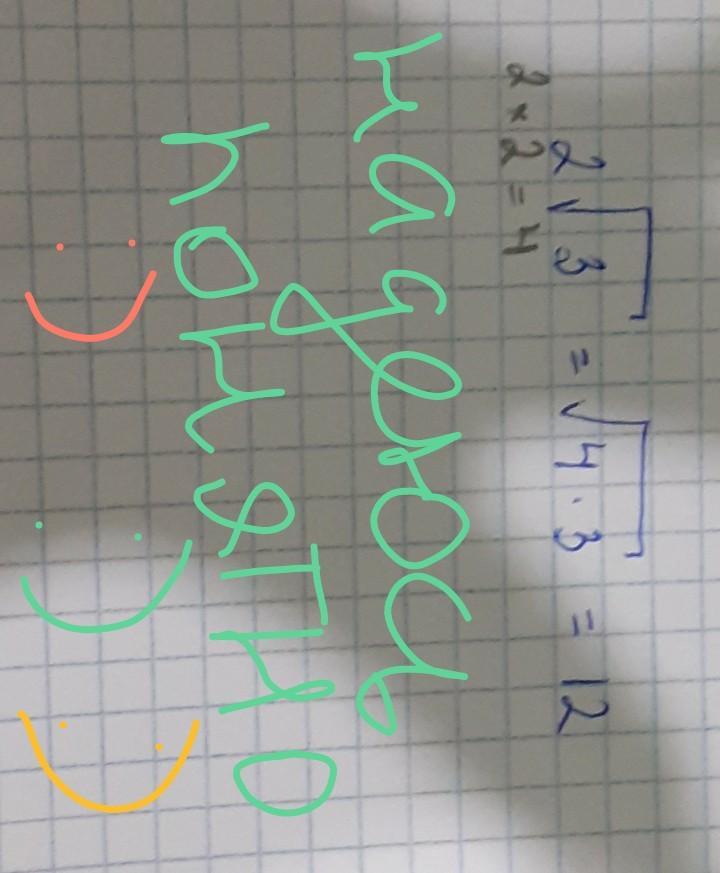 2√3 = √4·3 = 12
2 × 2 = 4
надеюсь
понятно